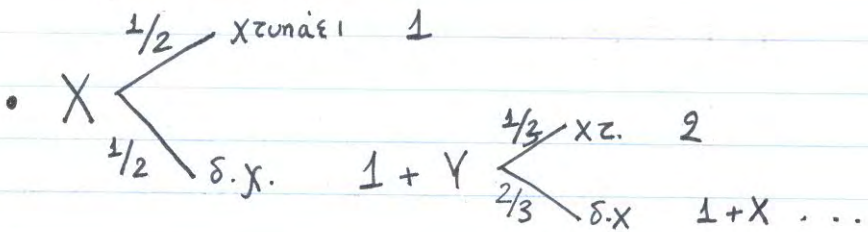 1/2 χτυπάει 1
• X
1/2 δ.χ. 1 + Y 1/3 χτ. 2
2/3 δ.χ 1+X ...